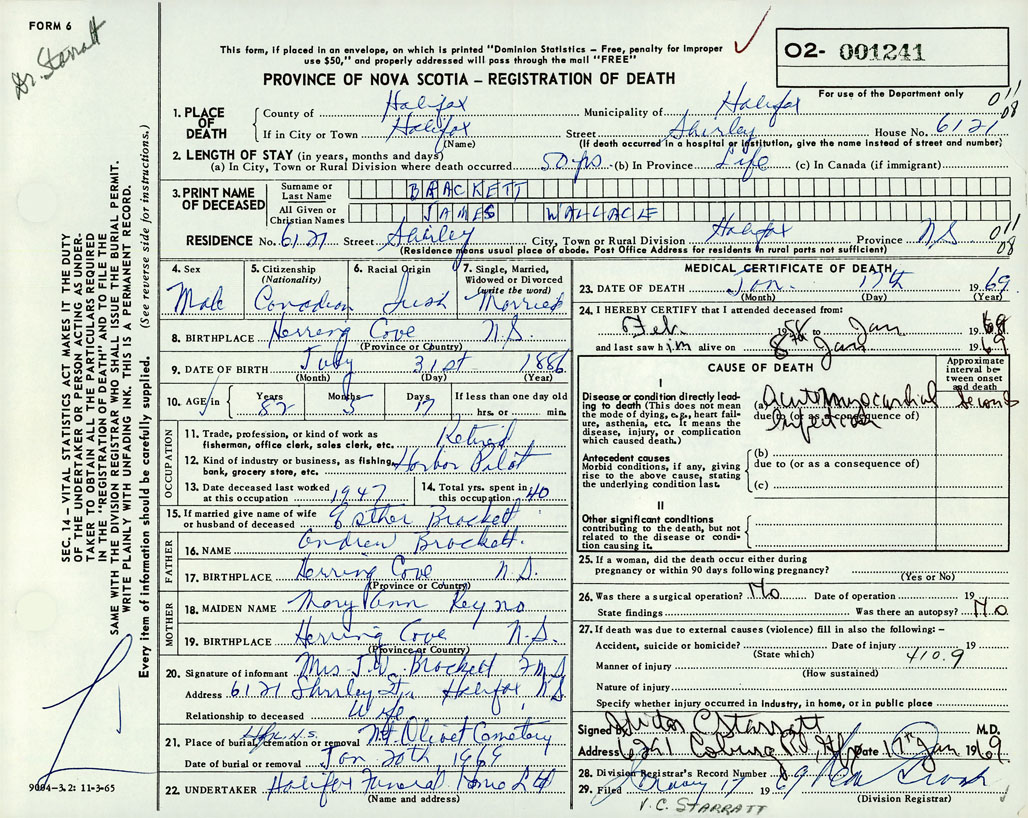 FORM 6
Dr. Starratt
This form, if placed in an envelope, on which is printed "Dominion Statistics – Free, penalty for improper
use $50," and properly addressed will pass through the mail "FREE"
PROVINCE OF NOVA SCOTIA – REGISTRATION OF DEATH
02- 001241
For use of the Department only
011
08
1. PLACE OF DEATH
County of Halifax Municipality of Halifax
If in City or Town Halifax Street Shirley House No. 6121
(Name) (If death occurred in a hospital or institution, give the name instead of street and number)
2. LENGTH OF STAY (in years, months and days)
(a) In City, Town or Rural Division where death occurred 50 yrs (b) In Province Life (c) In Canada (if immigrant)
3. PRINT NAME OF DECEASED
Surname or Last Name BRACKETT
All Given or Christian Names JAMES WALLACE
RESIDENCE No. 6121 Street Shirley City, Town or Rural Division Halifax Province N.S. 011
08
(Residence means usual place of abode. Post Office Address for residents in rural parts not sufficient)
4. Sex Male
5. Citizenship (Nationality) Canadian
6. Racial Origin Irish
7. Single, Married, Widowed or Divorced (write the word) Married
8. BIRTHPLACE Herring Cove N.S.
(Province or Country)
9. DATE OF BIRTH July 31st 1886
(Month) (Day) (Year)
10. AGE in Years 82 Months 5 Days 17 If less than one day old
hrs. or min.
OCCUPATION
11. Trade, profession, or kind of work as
fisherman, office clerk, sales clerk, etc. Retired
12. Kind of industry or business, as fishing,
bank, grocery store, etc. Harbor Pilot
13. Date deceased last worked
at this occupation 1947
14. Total yrs. spent in
this occupation 40
15. If married give name of wife
or husband of deceased Esther Brackett
FATHER
16. NAME Andrew Brackett.
17. BIRTHPLACE Herring Cove N.S.
(Province or Country)
MOTHER
18. MAIDEN NAME Mary Ann Reyno
19. BIRTHPLACE Herring Cove N.S.
(Province or Country)
20. Signature of informant Mrs J.W. Brackett
Address 6121 Shirley St., Halifax N.S
Relationship to deceased Wife
21. Place of burial, cremation or removal Mt Olivet Cemetery
Hfx. N.S.
Date of burial or removal Jan 20th, 1969
22. UNDERTAKER Halifax Funeral Home Ltd
(Name and address)
MEDICAL CERTIFICATE OF DEATH
23. DATE OF DEATH Jan. 17th 1969
(Month) (Day) (Year)
24. I HEREBY CERTIFY that I attended deceased from:
Feb. 1958 to Jan 1969
and last saw him alive on 8th Jan 1969
CAUSE OF DEATH
Approximate interval between onset and death
I
Disease or condition directly leading
to death (This does not mean
the mode of dying, e.g., heart failure,
asthenia, etc. It means the
disease, injury, or complication
which caused death.)
(a) Acute Myocardial Infarction
due to (or as a consequence of)
Antecedent causes
Morbid conditions, if any, giving
rise to the above cause, stating
the underlying condition last.
(b)
due to (or as a consequence of)
(c)
II
Other significant conditions
contributing to the death, but not
related to the disease or condition
causing it.
25. If a woman, did the death occur either during
pregnancy or within 90 days following pregnancy?
(Yes or No)
26. Was there a surgical operation? No Date of operation 19
State findings Was there an autopsy? No
27. If death was due to external causes (violence) fill in also the following: –
Accident, suicide or homicide? Date of injury 19
(State which) 410.9
Manner of injury
(How sustained)
Nature of injury
Specify whether injury occurred in Industry, in home, or in public place
Signed Victor C Starratt M.D.
Address 6291 Coburg Rd, Hfx Date 17th Jan 1969
28. Division Registrar's Record Number 89
29. Filed January 17 1969
(Division Registrar)
V.C. STARRATT
SEC. 14 – VITAL STATISTICS ACT MAKES IT THE DUTY
OF THE UNDERTAKER OR PERSON ACTING AS UNDER-
TAKER TO OBTAIN ALL THE PARTICULARS REQUIRED
IN THE "REGISTRATION OF DEATH" AND TO FILE THE
SAME WITH THE DIVISION REGISTRAR WHO SHALL ISSUE THE BURIAL PERMIT.
WRITE PLAINLY WITH UNFADING INK. THIS IS A PERMANENT RECORD.
Every item of information should be carefully supplied. (See reverse side for instructions.)
9004–3.2: 11-3-65